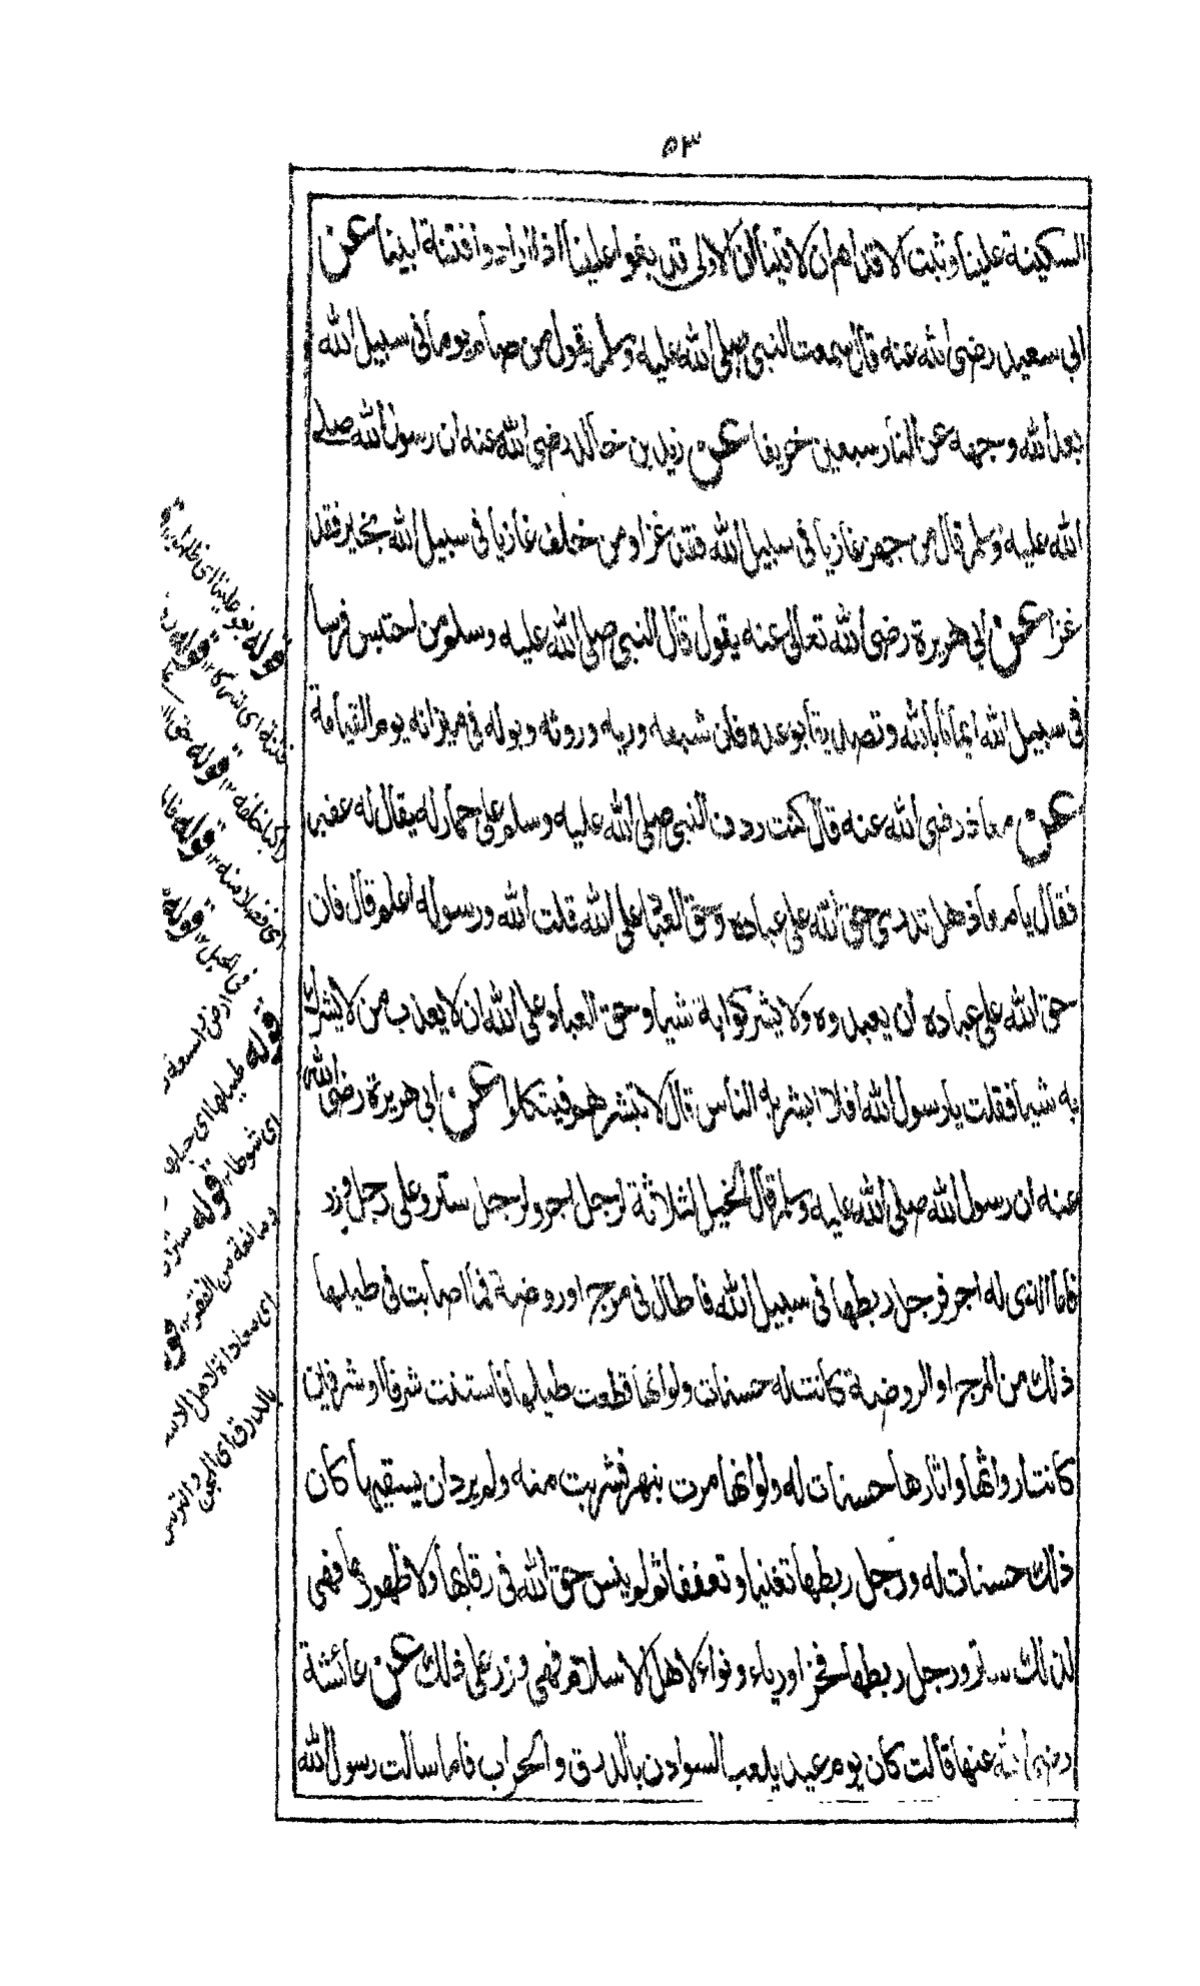 ٥٣
السكينة علينا وثبت الاقدام ان لاقينا ان الاولى قد بغوا علينا اذا ارادوا فتنة ابينا عن
ابى سعيد رضى الله عنه قال سمعت النبى صلى الله عليه وسلم يقول من صام يوما فى سبيل الله
بعد الله وجهه عن النار سبعين خريفا عن زيد بن خالد رضى الله عنه ان رسول الله صلے
الله عليه وسلم قال من جهز غازيا فى سبيل الله فقد غزا ومن خلف غازيا فى سبيل الله بخير فقد
غزا عن ابي هريرة رضى الله تعالى عنه يقول قال النبى صلى الله عليه وسلم من احتبس فرسا
فى سبيل الله ايمانا بالله وتصديقا بوعده فان شبعه وريه وروثه وبوله فى ميزانه يوم القيامة
عن معاذ رضى الله عنه قال كنت ردف النبى صلى الله عليه وسلم على حمار له يقال له عفير
فقال يا معاذ هل تدرى حق الله على عباده وحق العباد على الله قلت الله ورسوله اعلم قال فان
حق الله على عباده ان يعبدوه ولا يشركوا به شيئا وحق العباد على الله ان لا يعذب من لا يشرك
به شيئا فقلت يا رسول الله افلا ابشر به الناس قال لا تبشرهم فيتكلوا عن ابى هريرة رضى الله
عنه ان رسول الله صلى الله عليه وسلم قال الخيل لثلاثة لرجل اجر ولرجل ستر وعلى رجل وزر
فاما الذى له اجر فرجل ربطها فى سبيل الله فاطال فى مرج او روضة فما اصابت فى طيلها
ذلك من المرج او الروضة كانت له حسنات ولو انها قطعت طيلها فاستنت شرفا او شرفين
كانت ارواثها واثارها حسنات له ولو انها مرت بنهر فشربت منه ولم يرد ان يسقيها كان
ذلك حسنات له ورجل ربطها تغنيا وتعففا ثم لم ينس حق الله فى رقابها ولا ظهورها فهى
لذلك ستر ورجل ربطها فخرا ورياء ونواء لاهل الاسلام فهى وزر على ذلك عن عائشة
رضى الله عنها قالت كان يوم عيد يلعب السودان بالدرق والحراب فاما سالت رسول الله
قوله بغوا علينا اى
قوله
فتنة اى
قوله
قوله
اى فضلا منه ١٢
قوله
قوله طيلها اى
قوله
قوله
اى معاداة لاهل الاس
بالدرق اى